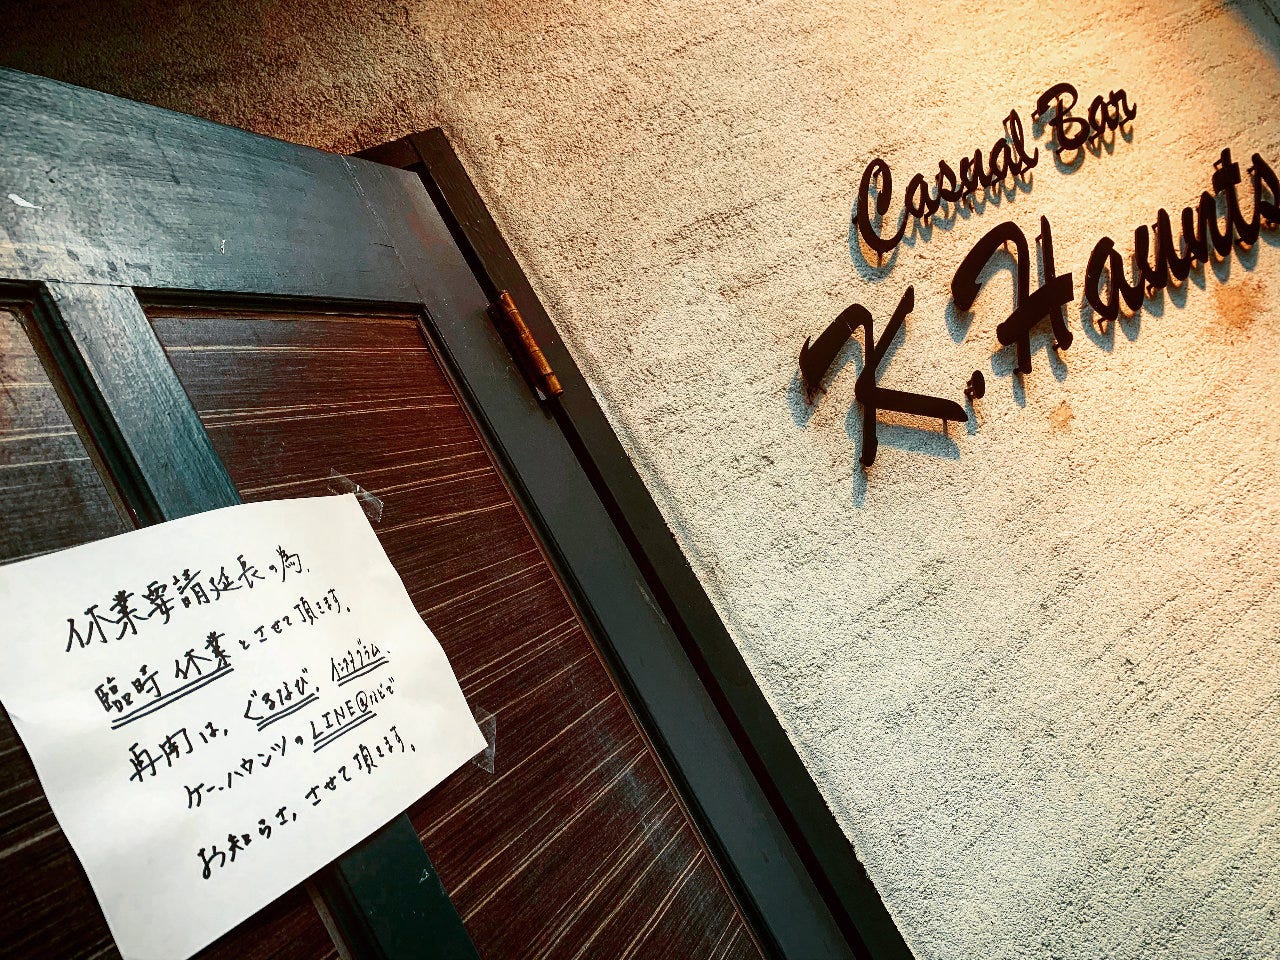 Casual Bar
K. Haunts
休業要請延長の為、
臨時休業とさせて頂きます。
再開は、ぐるなび、インスタグラム、
ケー.ハウンツのLINE@などで
お知らせ、させて頂きます。